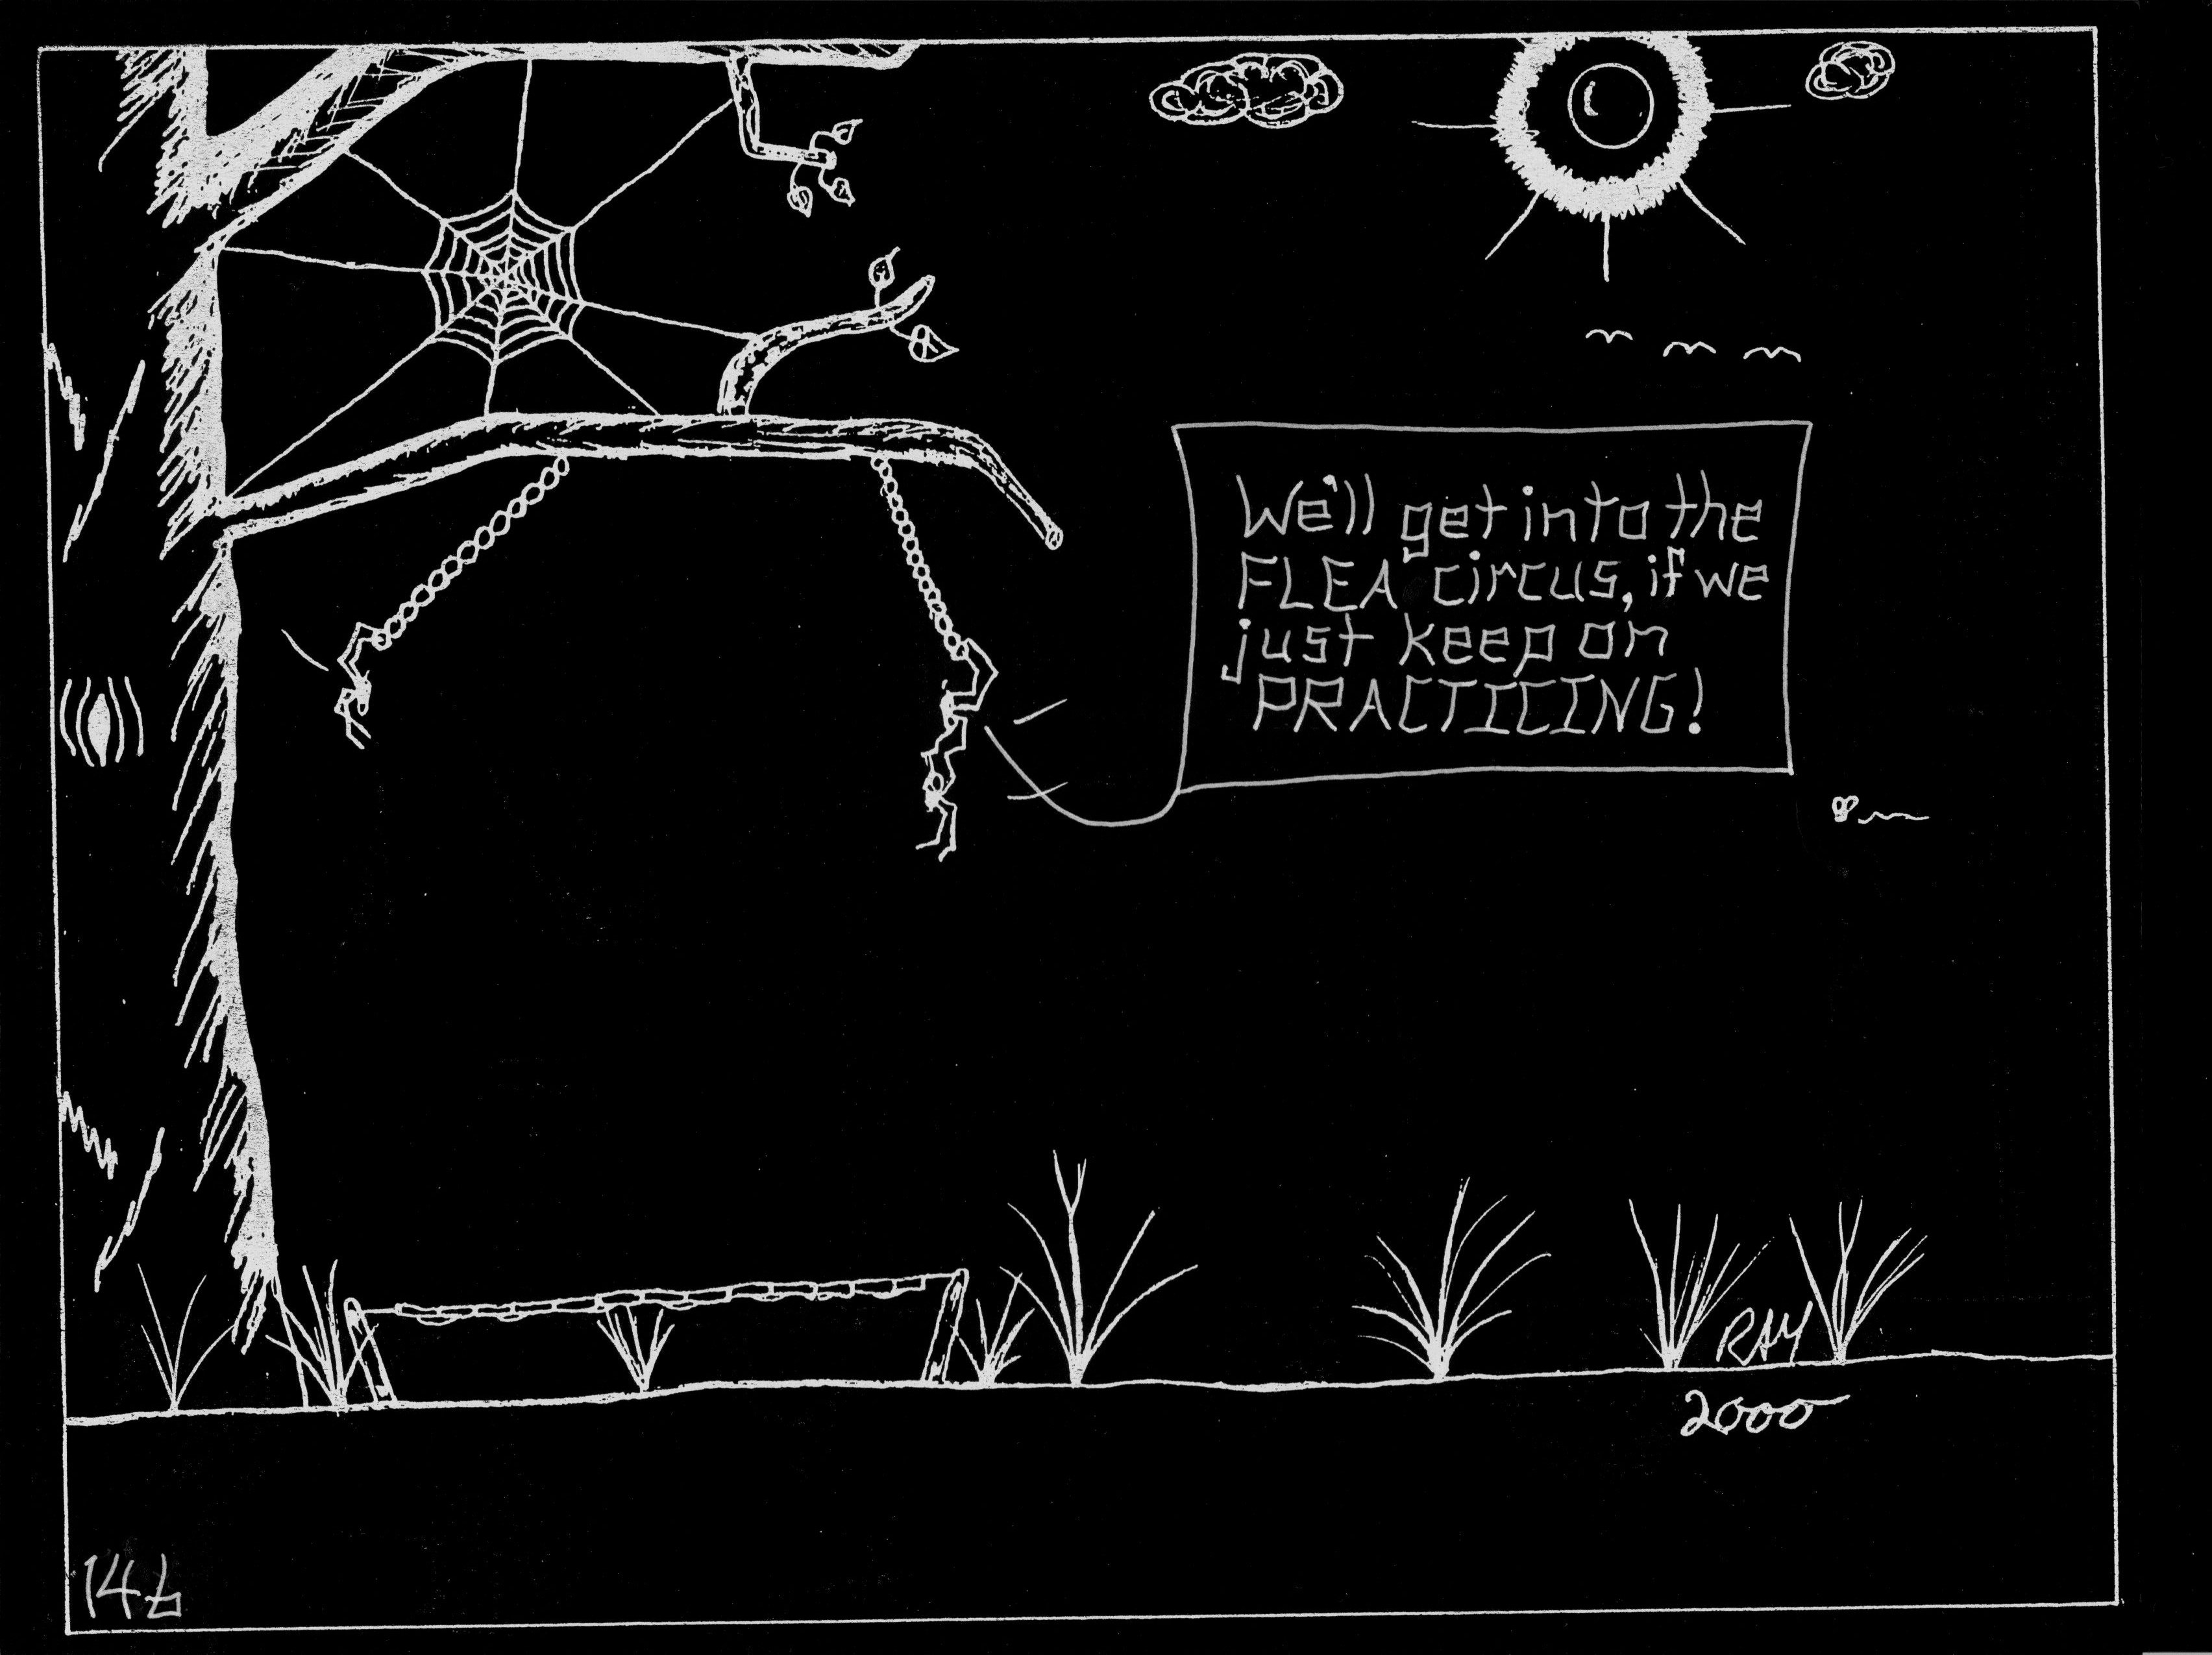 We'll get into the
FLEA circus, if we
just keep on
PRACTICING!
RAY
2000